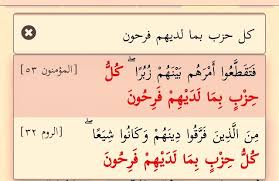 كل حزب بما لديهم فرحون
فَتَقَطَّعُوا أَمْرَهُم بَيْنَهُمْ زُبُرًا ۖ كُلُّ [المؤمنون ٥٣]
حِزْبٍ بِمَا لَدَيْهِمْ فَرِحُونَ
مِنَ الَّذِينَ فَرَّقُوا دِينَهُمْ وَكَانُوا شِيَعًا ۖ [الروم ٣٢]
كُلُّ حِزْبٍ بِمَا لَدَيْهِمْ فَرِحُونَ